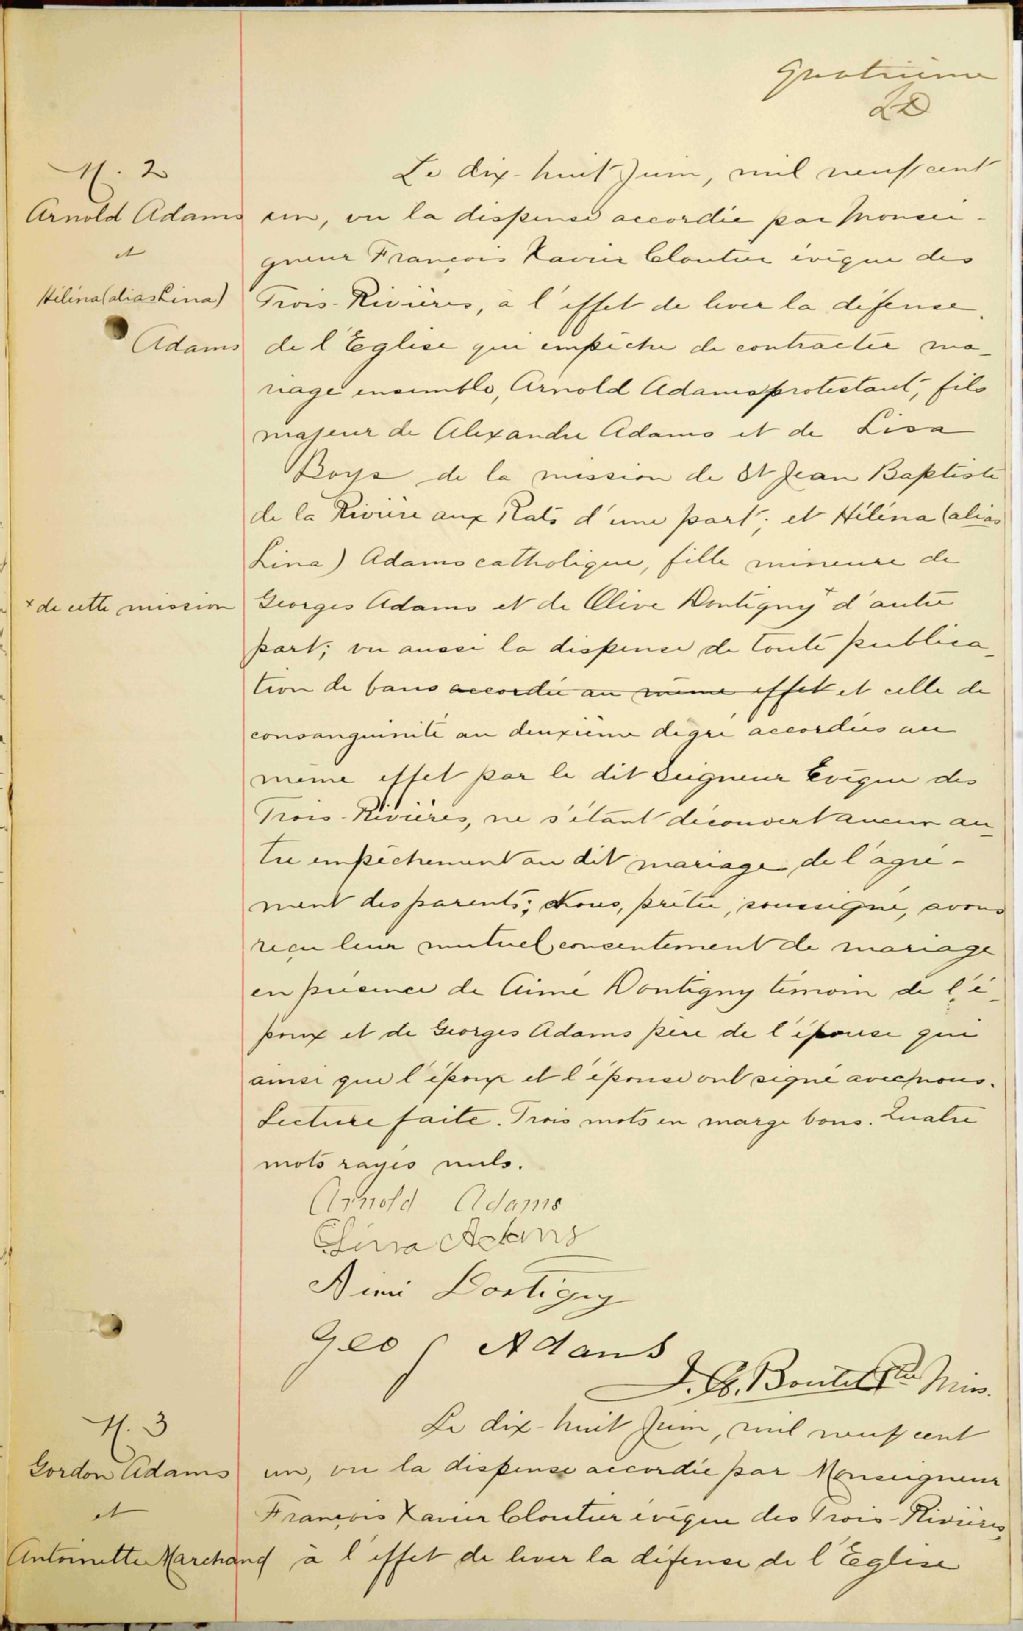 Quatrième
M. 2
Arnold Adams
et
Héléna (alias Lina)
Adams
Le dix-huit Juin, mil neuf cent
un, vu la dispense accordée par Monsei-
gneur François Xavier Cloutier évêque des
Trois-Rivières, à l'effet de lever la défense
de l'Eglise qui empêche de contracter ma-
riage ensemble, Arnold Adams protestant, fils
majeur de Alexandre Adams et de Lisa
Boys de la mission de St Jean Baptiste
de la Rivière aux Rats d'une part; et Héléna (alias
Lina) Adams catholique, fille mineure de
Georges Adams et de Olive Dontigny + d'autre
+ de cette mission
part; vu aussi la dispense de toute publica-
tion de bans accordée au même effet et celle de
consanguinité au deuxième degré accordées au
même effet par le dit Seigneur Evêque des
Trois-Rivières, ne s'étant découvert aucun au-
tre empêchement au dit mariage de l'agré-
ment des parents; Nous, prêtre, soussigné, avons
reçu leur mutuel consentement de mariage
en présence de Aimé Dontigny témoin de l'é-
poux et de Georges Adams père de l'épouse qui
ainsi que l'époux et l'épouse ont signé avec nous.
Lecture faite. Trois mots en marge bons. Quatre
mots rayés nuls.
Arnold Adams
Lina Adams
Aimé Dontigny
Geo Adams
J. B. Boutet Ptre Miss.
M. 3
Gordon Adams
et
Antoinette Marchand
Le dix-huit Juin, mil neuf cent
un, vu la dispense accordée par Monseigneur
François Xavier Cloutier évêque des Trois-Rivières,
à l'effet de lever la défense de l'Eglise